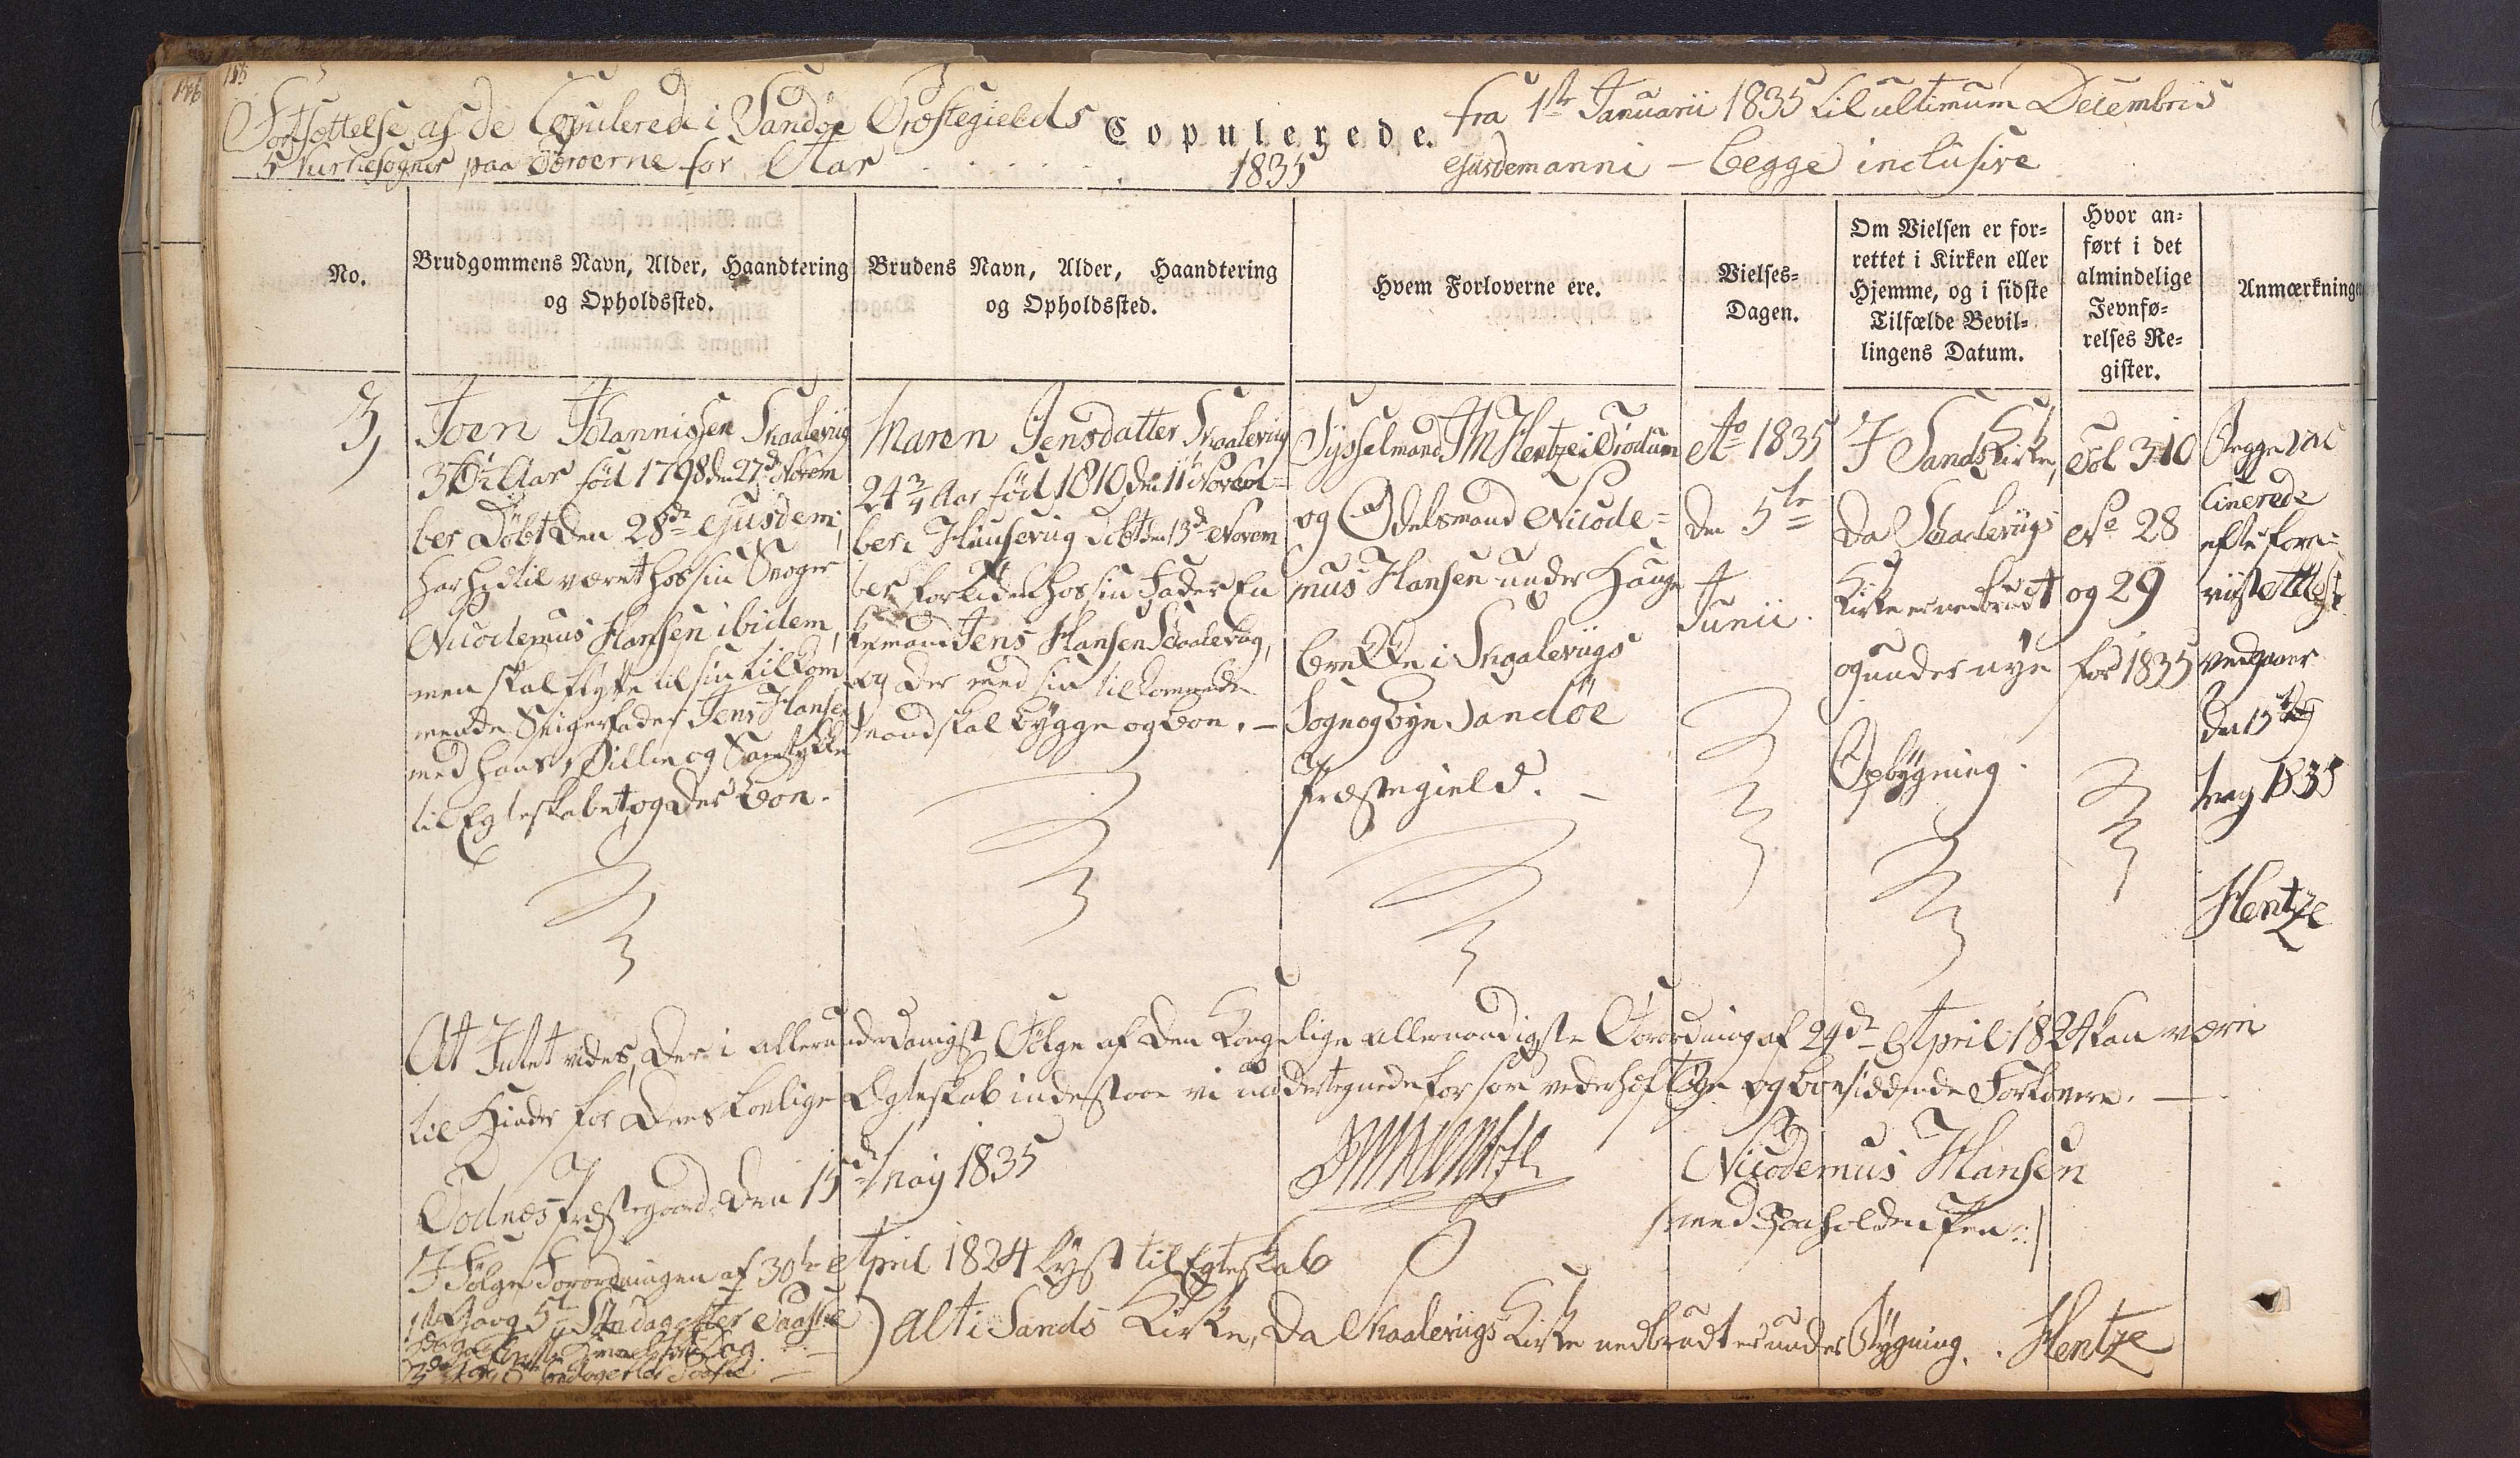 185
Fortsættelse af de Copulerede i Sandøe Præstegields
Copulerede.
fra 1ste Januarii 1835 til ultimum Decembris
5 Kirkesogner paa Færoerne for Aar . . . . . 1835
ejusdem anni – begge inclusive
No.
Brudgommens Navn, Alder, Haandtering
og Opholdssted.
Brudens Navn, Alder, Haandtering
og Opholdssted.
Hvem Forloverne ere.
Vielses-
Dagen.
Om Vielsen er for-
rettet i Kirken eller
Hjemme, og i sidste
Tilfælde Bevil-
lingens Datum.
Hvor an-
ført i det
almindelige
Jevnfø-
relses Re-
gister.
Anmærkninge
3,
Joen Johannissen Skaalevüg
Aar född 1798 den 27de Novem
ber Döbt den 28de ejusdem,
har hidtil været hos sin Svoger
Nicodemus Hansen ibidem,
men skal flytte til sin tilkom
mende Svigerfader Jens Hansen
med hans Villie og Samtykke
til Egteskabet og der boe.
Maren Jensdatter Skaalevüg
24 3/4 Aar föd 1810 den 11te Novem=
ber i Huusevug döbt den 13de Novem
ber forleden hos sin Fader
Jens Hansen Skaalevüg,
og der med sin tilkommende
Mand skal bygge og boe. –
Sysselmand JM Hentze i Trödum
og Odelsmand Nicode=
mus Hansen under Hauge
brekke i Skaalevügs
Sogn og bye Sandöe
Præstegield. –
Ao 1835
den 5te
Junii.
I Sands Kirke,
da Skaalevügs
Kirke er nedbrudt
og under nye
Opbygning.
Fol 310
No 28
og 29
for 1835
Begge vac
cinerede
efter fore=
viist Attest
vedgaaer
den 15de
May 1835
Hentze
At Intet vides, der i allerunderdanigst Fölge af den Kongelige allernaadigste Forordning af 24de April 1824 kan være
til Hinder for deres lovlige Egteskab indestaae vi undertegnede for som vederhæftige og boesiddende Forlovere. –
Todnæs Præstegaard den 15de May 1835
JMHentze
Nicodemus Hansen
/:med paaholden Pen:/
I Fölge Forordningen af 30te April 1824 lyst til Egteskab
1ste Gang 5te Söndag efter Paaske
) alt i Sands Kirke, da Skaalevügs Kirke nedbrudt er under Bygning. . Hentze